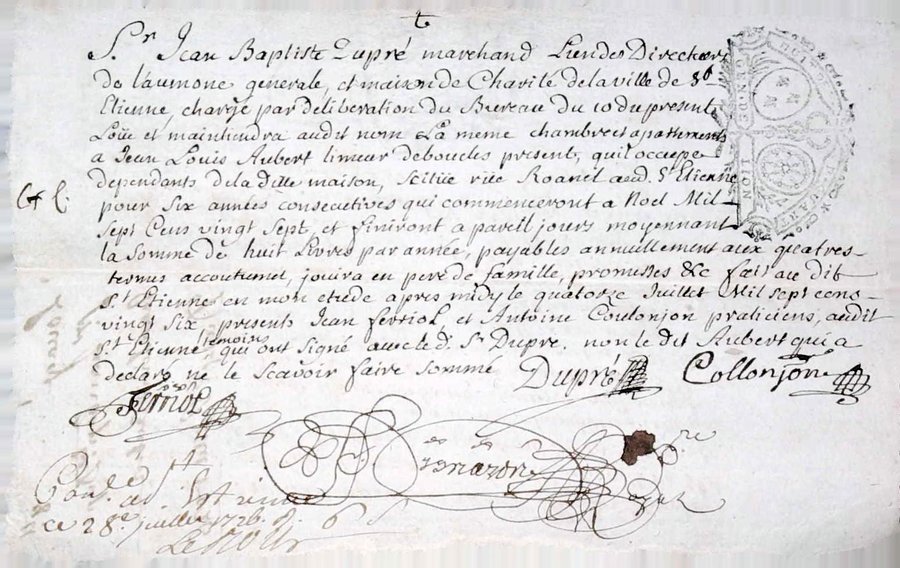 t
S.r Jean Baptiste Dupré marchand L'un des Directeurs
de l'aumone generale, et maison de Charité de la ville de St
Etienne, chargé par deliberation du Bureau du 10 du present,
Loüe et maintiendra audit nom La meme chambre et apartements
a Jean Louis Aubert limeur de boucles present, quil occupe
dependants de la ditte maison, scitüe rüe Roanel aud. St Etienne
pour six années consecutives qui commenceront a Noel Mil
sept Cens vingt sept, et finiront a pareil jours moyennant
la somme de huit Livres par année, payables annuellement aux quatres
termes accoutumé, jouira en pere de famille, promesses &c fait au dit
St Etienne en mon etude apres midy le quatorze Juillet Mil sept cens
vingt six, presents Jean ferriol et Antoine Coulonjon praticiens, audit
St Etienne temoins qui ont signé avec le d. Sr Dupré. non le dit Aubert qui a
declaré ne le scavoir faire sommé Dupré Collonjon
Ferriol
Con.le ad. St Etienne
ce 28e juillet 1726.